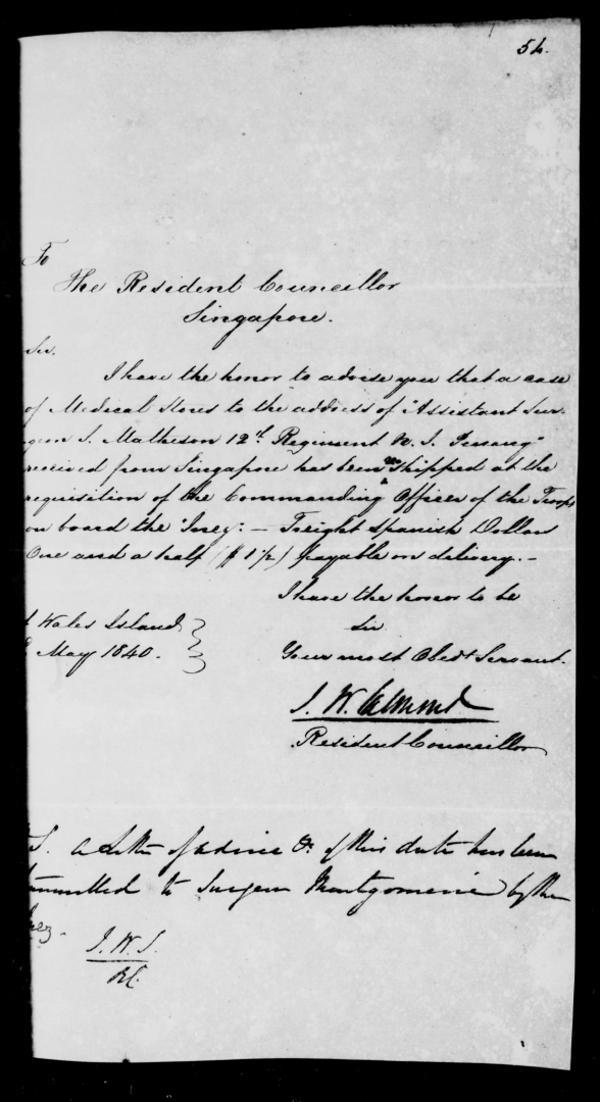 54.
To
The Resident Councillor
Singapore.
Sir.
I have the honor to advise you that a case
of Medical Stores to the address of "Assistant Sur-
geon J. Matheson 12th Regiment N. I. Penang"
received from Singapore has been shipped at the
requisition of the Commanding Officer of the Troops
on board the :— Freight Spanish Dollar
One and a half ($ 1½) payable on delivery.—
I have the honor to be
Sir
Wales Island
May 1840.
Your most Obedt Servant.
J. W.
Resident Councillor
S. a letter of advice &c of this date has been
to Surgeon Montgomerie by the
J. W. S.
R.C.